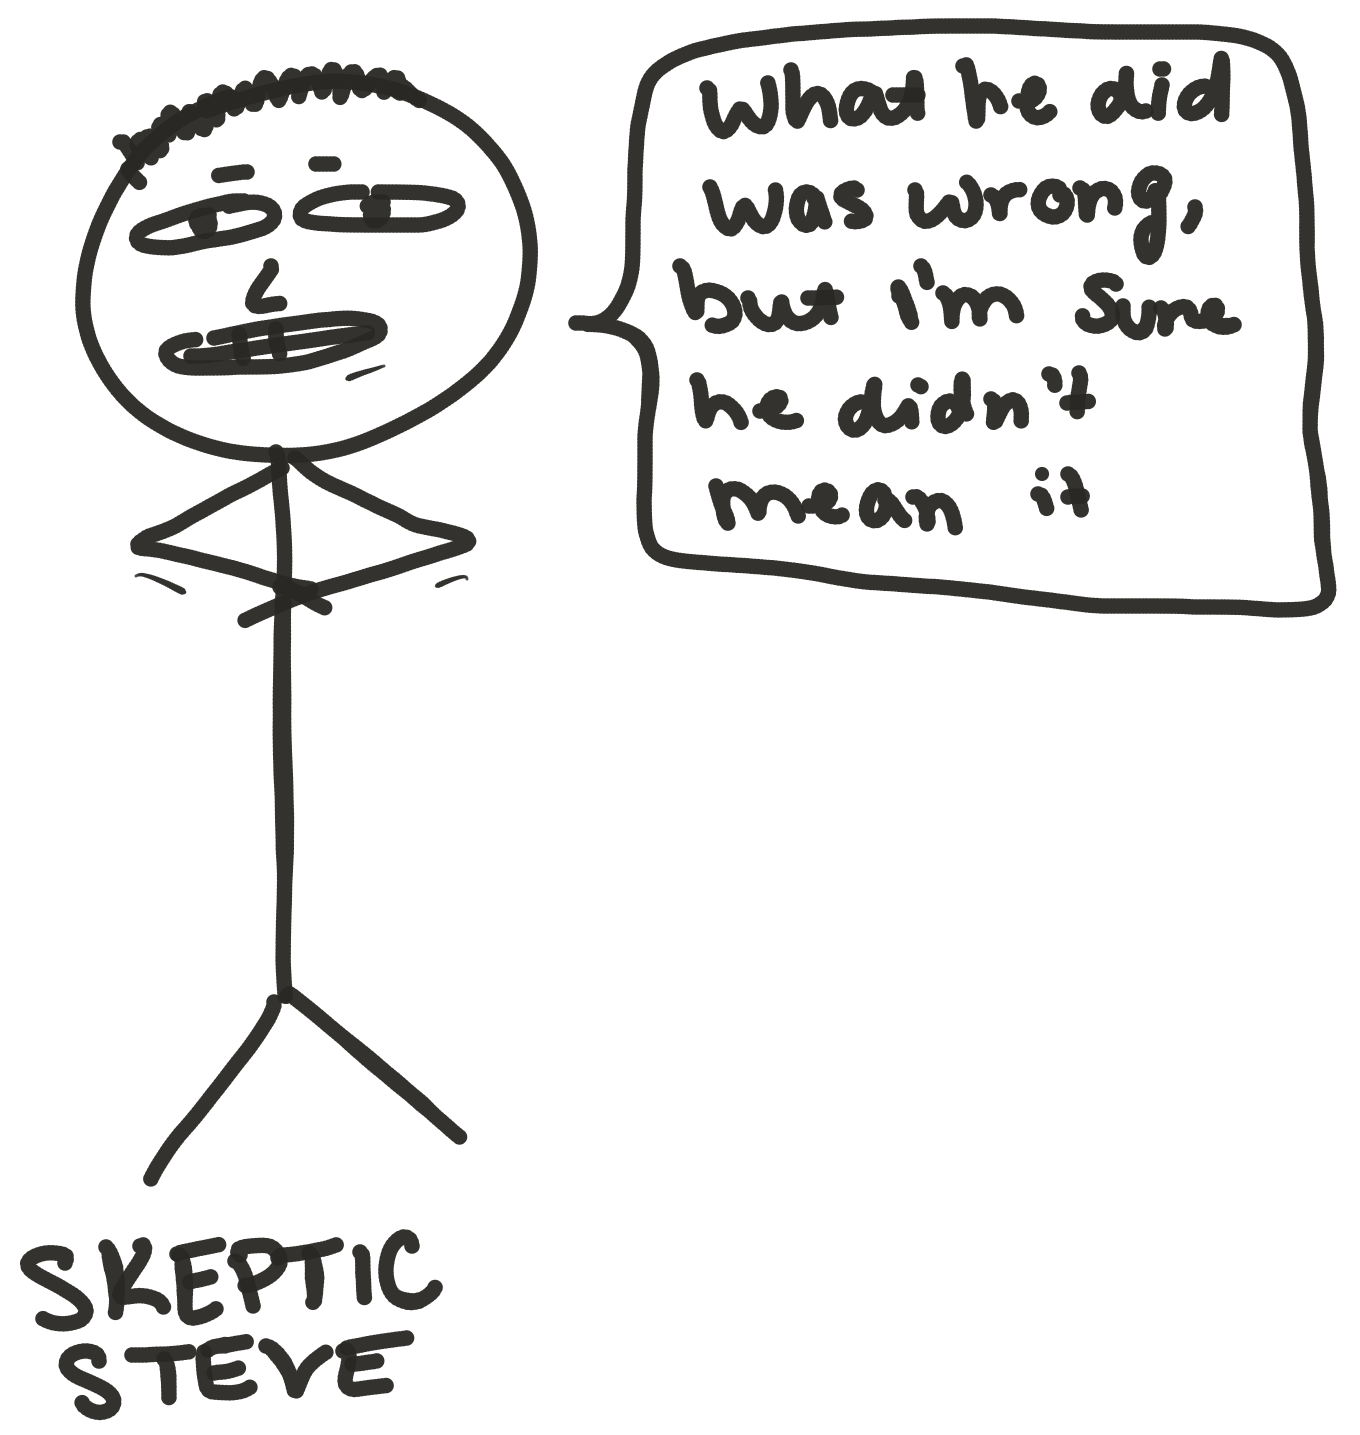 What he did
was wrong,
but I'm sure
he didn't
mean it
SKEPTIC
STEVE